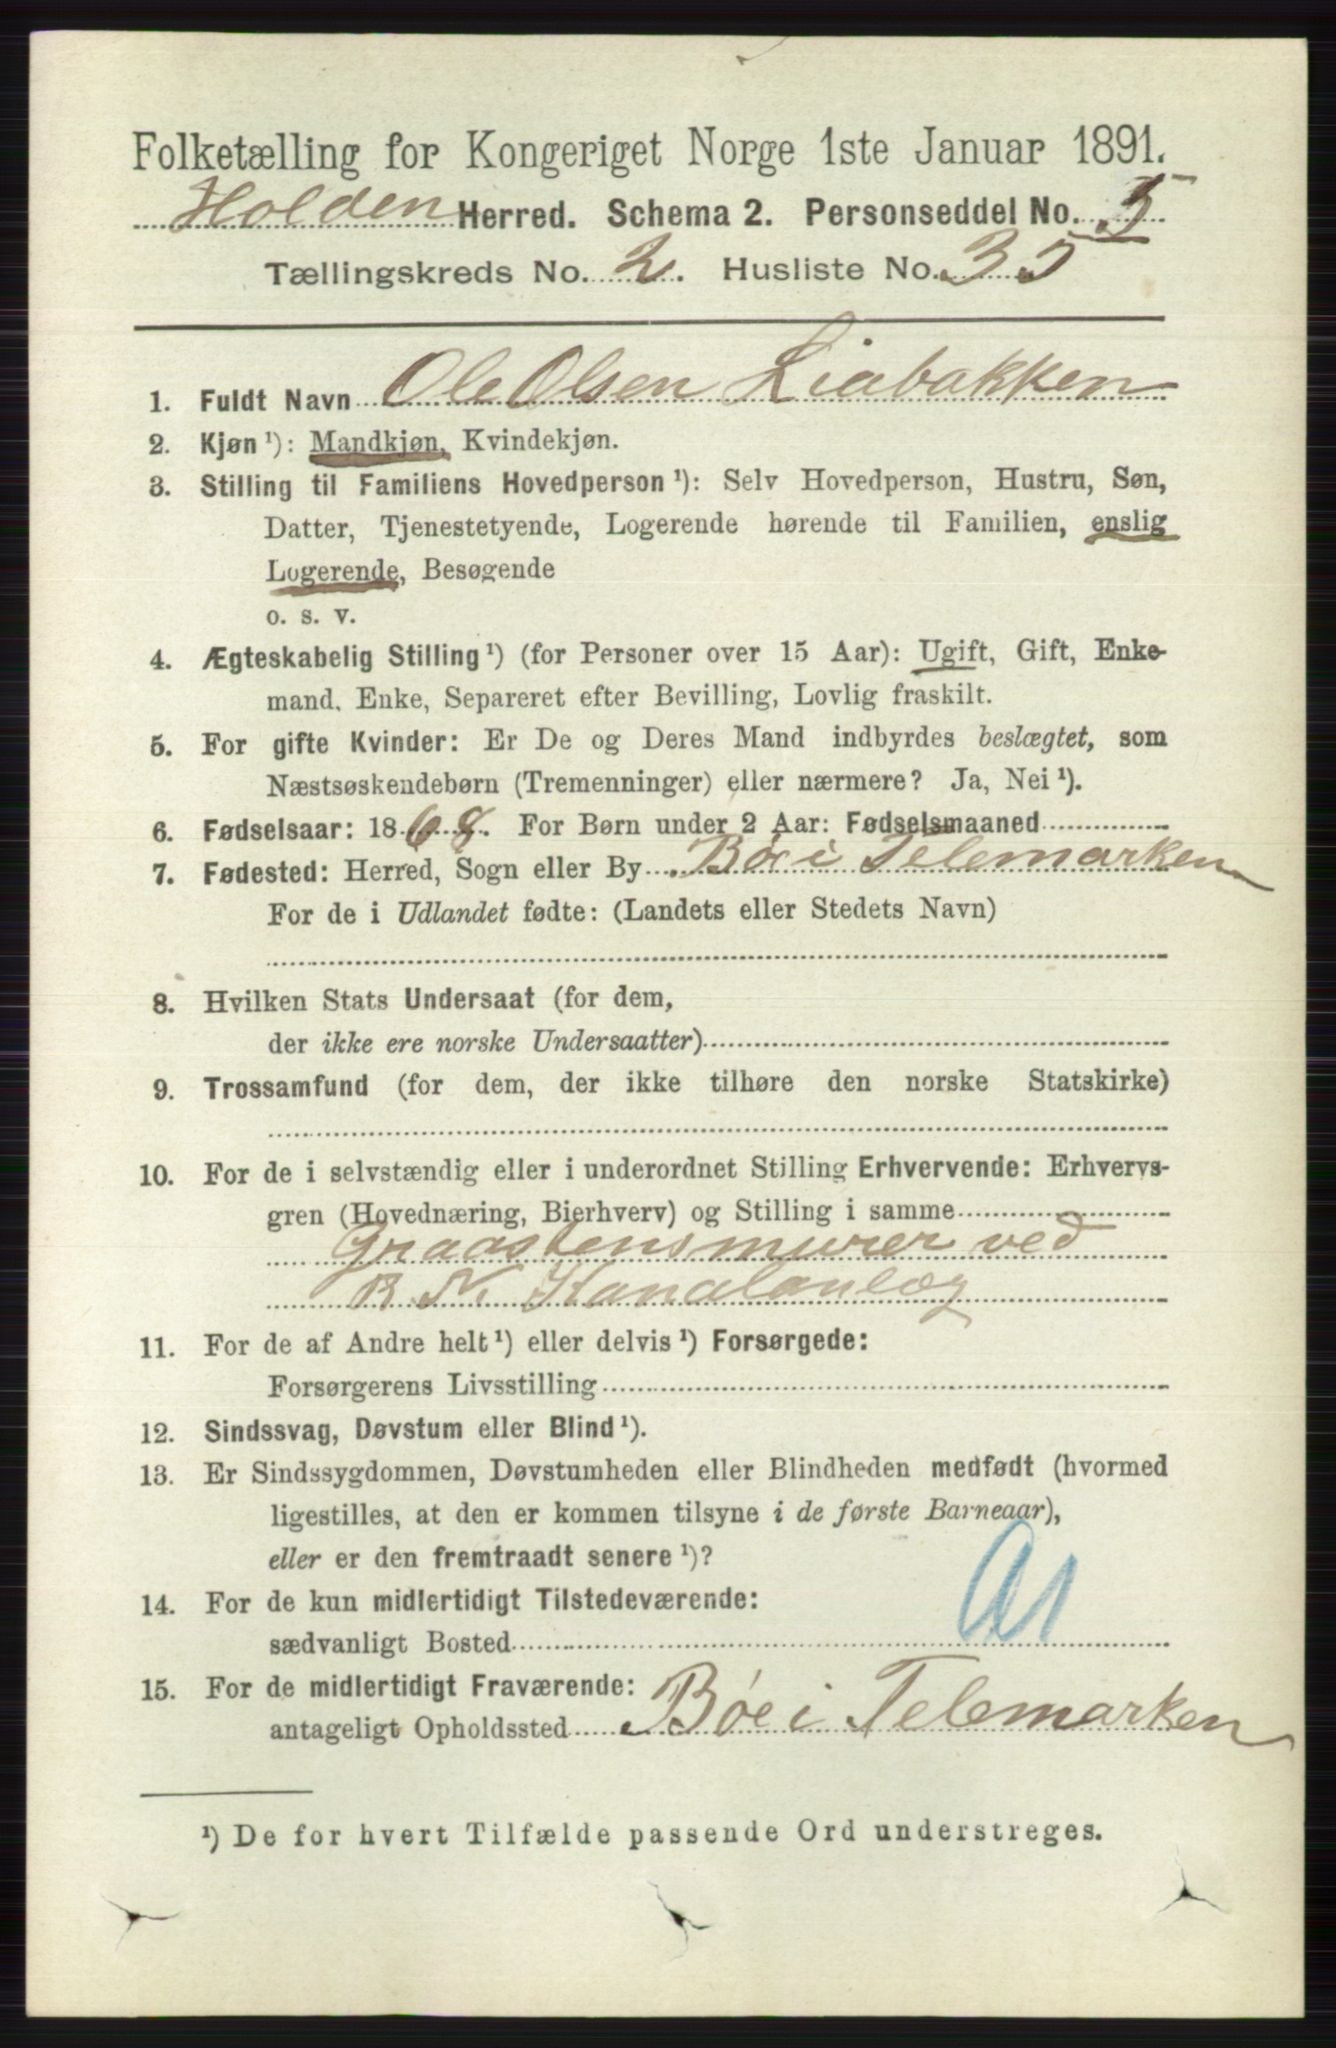 Folketælling for Kongeriget Norge 1ste Januar 1891.
Holden Herred. Schema 2. Personseddel No. 5
Tællingskreds No. 2. Husliste No. 35
1. Fuldt Navn Ole Olsen Liabakken
2. Kjøn ¹): Mandkjøn, Kvindekjøn.
3. Stilling til Familiens Hovedperson ¹): Selv Hovedperson, Hustru, Søn,
Datter, Tjenestetyende, Logerende hørende til Familien, enslig
Logerende, Besøgende
o. s. v.
4. Ægteskabelig Stilling ¹) (for Personer over 15 Aar): Ugift, Gift, Enke-
mand, Enke, Separeret efter Bevilling, Lovlig fraskilt.
5. For gifte Kvinder: Er De og Deres Mand indbyrdes beslægtet, som
Næstsøskendebørn (Tremenninger) eller nærmere? Ja, Nei ¹).
6. Fødselsaar: 1868. For Børn under 2 Aar: Fødselsmaaned
7. Fødested: Herred, Sogn eller By Bøe i Telemarken
For de i Udlandet fødte: (Landets eller Stedets Navn)
8. Hvilken Stats Undersaat (for dem,
der ikke ere norske Undersaatter)
9. Trossamfund (for dem, der ikke tilhøre den norske Statskirke)
10. For de i selvstændig eller i underordnet Stilling Erhvervende: Erhvervs-
gren (Hovednæring, Bierhverv) og Stilling i samme
Graastensmurer ved
B. N. Kanalanlæg
11. For de af Andre helt ¹) eller delvis ¹) Forsørgede:
Forsørgerens Livsstilling
12. Sindssvag, Døvstum eller Blind ¹).
13. Er Sindssygdommen, Døvstumheden eller Blindheden medfødt (hvormed
ligestilles, at den er kommen tilsyne i de første Barneaar),
eller er den fremtraadt senere ¹)?
14. For de kun midlertidigt Tilstedeværende:
sædvanligt Bosted
15. For de midlertidigt Fraværende:
antageligt Opholdssted Bøe i Telemarken
¹) De for hvert Tilfælde passende Ord understreges.